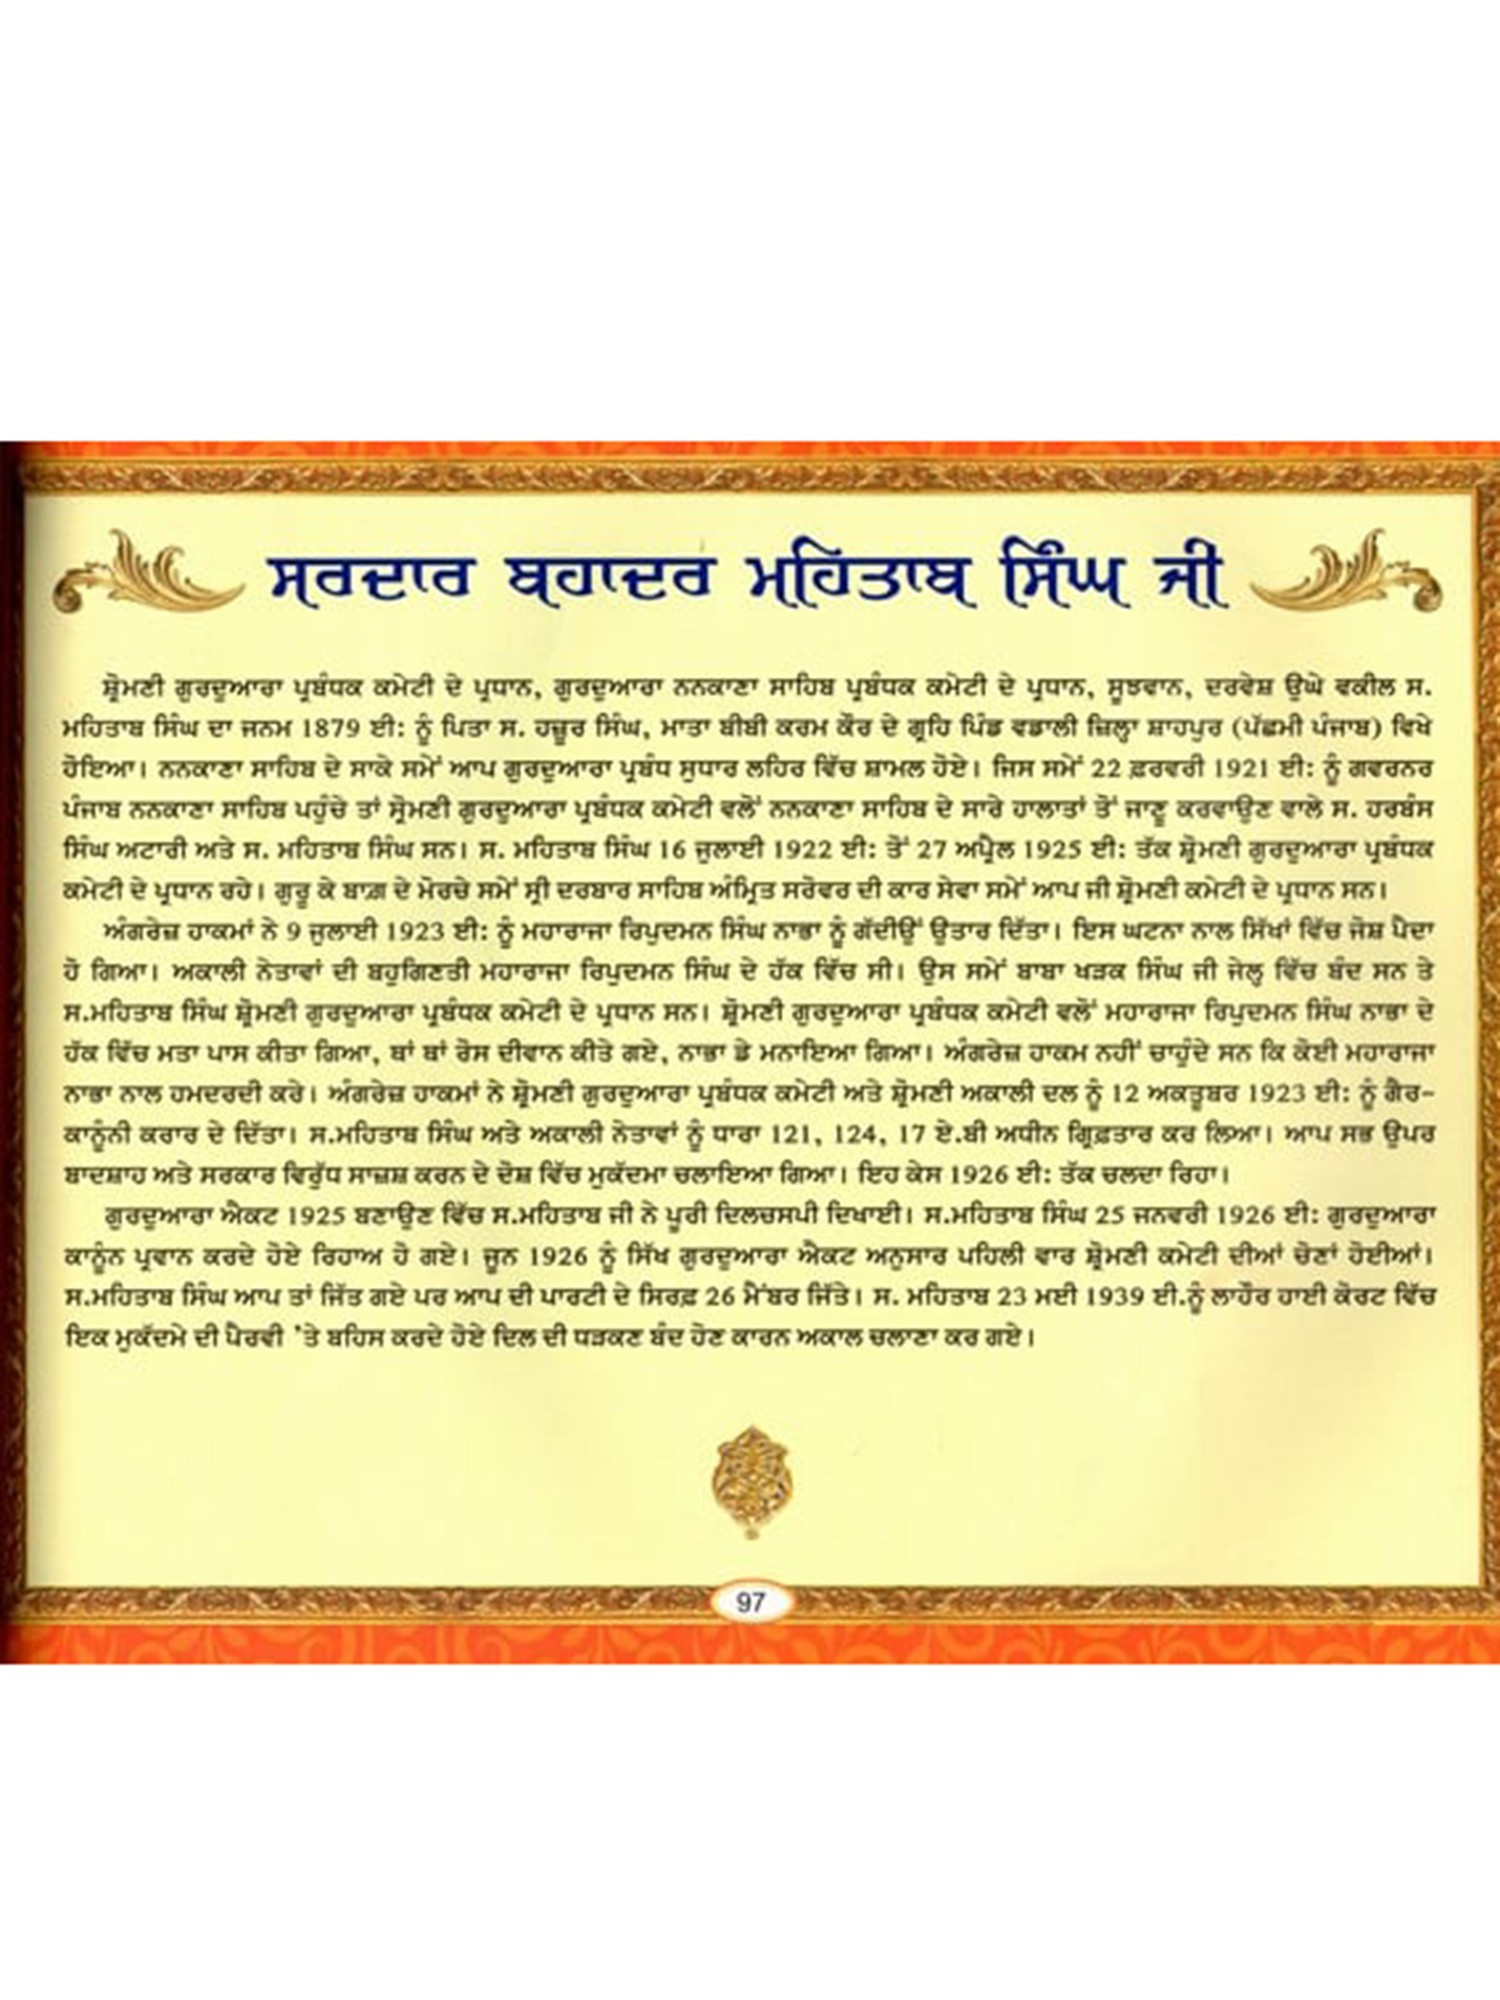 ਸਰਦਾਰ ਬਹਾਦਰ ਮਹਿਤਾਬ ਸਿੰਘ ਜੀ
ਸ਼੍ਰੋਮਣੀ ਗੁਰਦੁਆਰਾ ਪ੍ਰਬੰਧਕ ਕਮੇਟੀ ਦੇ ਪ੍ਰਧਾਨ, ਗੁਰਦੁਆਰਾ ਨਨਕਾਣਾ ਸਾਹਿਬ ਪ੍ਰਬੰਧਕ ਕਮੇਟੀ ਦੇ ਪ੍ਰਧਾਨ, ਸੂਝਵਾਨ, ਦਰਵੇਸ਼ ਉਘੇ ਵਕੀਲ ਸ.
ਮਹਿਤਾਬ ਸਿੰਘ ਦਾ ਜਨਮ 1879 ਈ: ਨੂੰ ਪਿਤਾ ਸ. ਹਜ਼ੂਰ ਸਿੰਘ, ਮਾਤਾ ਬੀਬੀ ਕਰਮ ਕੌਰ ਦੇ ਗ੍ਰਹਿ ਪਿੰਡ ਵਡਾਲੀ ਜ਼ਿਲ੍ਹਾ ਸ਼ਾਹਪੁਰ (ਪੱਛਮੀ ਪੰਜਾਬ) ਵਿਖੇ
ਹੋਇਆ। ਨਨਕਾਣਾ ਸਾਹਿਬ ਦੇ ਸਾਕੇ ਸਮੇਂ ਆਪ ਗੁਰਦੁਆਰਾ ਪ੍ਰਬੰਧ ਸੁਧਾਰ ਲਹਿਰ ਵਿੱਚ ਸ਼ਾਮਲ ਹੋਏ। ਜਿਸ ਸਮੇਂ 22 ਫ਼ਰਵਰੀ 1921 ਈ: ਨੂੰ ਗਵਰਨਰ
ਪੰਜਾਬ ਨਨਕਾਣਾ ਸਾਹਿਬ ਪਹੁੰਚੇ ਤਾਂ ਸ੍ਰੋਮਣੀ ਗੁਰਦੁਆਰਾ ਪ੍ਰਬੰਧਕ ਕਮੇਟੀ ਵਲੋਂ ਨਨਕਾਣਾ ਸਾਹਿਬ ਦੇ ਸਾਰੇ ਹਾਲਾਤਾਂ ਤੋਂ ਜਾਣੂ ਕਰਵਾਉਣ ਵਾਲੇ ਸ. ਹਰਬੰਸ
ਸਿੰਘ ਅਟਾਰੀ ਅਤੇ ਸ. ਮਹਿਤਾਬ ਸਿੰਘ ਸਨ। ਸ. ਮਹਿਤਾਬ ਸਿੰਘ 16 ਜੁਲਾਈ 1922 ਈ: ਤੋਂ 27 ਅਪ੍ਰੈਲ 1925 ਈ: ਤੱਕ ਸ਼੍ਰੋਮਣੀ ਗੁਰਦੁਆਰਾ ਪ੍ਰਬੰਧਕ
ਕਮੇਟੀ ਦੇ ਪ੍ਰਧਾਨ ਰਹੇ। ਗੁਰੂ ਕੇ ਬਾਗ਼ ਦੇ ਮੋਰਚੇ ਸਮੇਂ ਸ੍ਰੀ ਦਰਬਾਰ ਸਾਹਿਬ ਅੰਮ੍ਰਿਤ ਸਰੋਵਰ ਦੀ ਕਾਰ ਸੇਵਾ ਸਮੇਂ ਆਪ ਜੀ ਸ਼੍ਰੋਮਣੀ ਕਮੇਟੀ ਦੇ ਪ੍ਰਧਾਨ ਸਨ।
ਅੰਗਰੇਜ਼ ਹਾਕਮਾਂ ਨੇ 9 ਜੁਲਾਈ 1923 ਈ: ਨੂੰ ਮਹਾਰਾਜਾ ਰਿਪੁਦਮਨ ਸਿੰਘ ਨਾਭਾ ਨੂੰ ਗੱਦੀਉਂ ਉਤਾਰ ਦਿੱਤਾ। ਇਸ ਘਟਨਾ ਨਾਲ ਸਿੱਖਾਂ ਵਿੱਚ ਜੋਸ਼ ਪੈਦਾ
ਹੋ ਗਿਆ। ਅਕਾਲੀ ਨੇਤਾਵਾਂ ਦੀ ਬਹੁਗਿਣਤੀ ਮਹਾਰਾਜਾ ਰਿਪੁਦਮਨ ਸਿੰਘ ਦੇ ਹੱਕ ਵਿੱਚ ਸੀ। ਉਸ ਸਮੇਂ ਬਾਬਾ ਖੜਕ ਸਿੰਘ ਜੀ ਜੇਲ੍ਹ ਵਿੱਚ ਬੰਦ ਸਨ ਤੇ
ਸ.ਮਹਿਤਾਬ ਸਿੰਘ ਸ਼੍ਰੋਮਣੀ ਗੁਰਦੁਆਰਾ ਪ੍ਰਬੰਧਕ ਕਮੇਟੀ ਦੇ ਪ੍ਰਧਾਨ ਸਨ। ਸ਼੍ਰੋਮਣੀ ਗੁਰਦੁਆਰਾ ਪ੍ਰਬੰਧਕ ਕਮੇਟੀ ਵਲੋਂ ਮਹਾਰਾਜਾ ਰਿਪੁਦਮਨ ਸਿੰਘ ਨਾਭਾ ਦੇ
ਹੱਕ ਵਿੱਚ ਮਤਾ ਪਾਸ ਕੀਤਾ ਗਿਆ, ਥਾਂ ਥਾਂ ਰੋਸ ਦੀਵਾਨ ਕੀਤੇ ਗਏ, ਨਾਭਾ ਡੇ ਮਨਾਇਆ ਗਿਆ। ਅੰਗਰੇਜ਼ ਹਾਕਮ ਨਹੀਂ ਚਾਹੁੰਦੇ ਸਨ ਕਿ ਕੋਈ ਮਹਾਰਾਜਾ
ਨਾਭਾ ਨਾਲ ਹਮਦਰਦੀ ਕਰੇ। ਅੰਗਰੇਜ਼ ਹਾਕਮਾਂ ਨੇ ਸ਼੍ਰੋਮਣੀ ਗੁਰਦੁਆਰਾ ਪ੍ਰਬੰਧਕ ਕਮੇਟੀ ਅਤੇ ਸ਼੍ਰੋਮਣੀ ਅਕਾਲੀ ਦਲ ਨੂੰ 12 ਅਕਤੂਬਰ 1923 ਈ: ਨੂੰ ਗੈਰ-
ਕਾਨੂੰਨੀ ਕਰਾਰ ਦੇ ਦਿੱਤਾ। ਸ.ਮਹਿਤਾਬ ਸਿੰਘ ਅਤੇ ਅਕਾਲੀ ਨੇਤਾਵਾਂ ਨੂੰ ਧਾਰਾ 121, 124, 17 ਏ.ਬੀ ਅਧੀਨ ਗ੍ਰਿਫ਼ਤਾਰ ਕਰ ਲਿਆ। ਆਪ ਸਭ ਉਪਰ
ਬਾਦਸ਼ਾਹ ਅਤੇ ਸਰਕਾਰ ਵਿਰੁੱਧ ਸਾਜ਼ਸ਼ ਕਰਨ ਦੇ ਦੋਸ਼ ਵਿੱਚ ਮੁਕੱਦਮਾ ਚਲਾਇਆ ਗਿਆ। ਇਹ ਕੇਸ 1926 ਈ: ਤੱਕ ਚਲਦਾ ਰਿਹਾ।
ਗੁਰਦੁਆਰਾ ਐਕਟ 1925 ਬਣਾਉਣ ਵਿੱਚ ਸ.ਮਹਿਤਾਬ ਜੀ ਨੇ ਪੂਰੀ ਦਿਲਚਸਪੀ ਦਿਖਾਈ। ਸ.ਮਹਿਤਾਬ ਸਿੰਘ 25 ਜਨਵਰੀ 1926 ਈ: ਗੁਰਦੁਆਰਾ
ਕਾਨੂੰਨ ਪ੍ਰਵਾਨ ਕਰਦੇ ਹੋਏ ਰਿਹਾਅ ਹੋ ਗਏ। ਜੂਨ 1926 ਨੂੰ ਸਿੱਖ ਗੁਰਦੁਆਰਾ ਐਕਟ ਅਨੁਸਾਰ ਪਹਿਲੀ ਵਾਰ ਸ਼੍ਰੋਮਣੀ ਕਮੇਟੀ ਦੀਆਂ ਚੋਣਾਂ ਹੋਈਆਂ।
ਸ.ਮਹਿਤਾਬ ਸਿੰਘ ਆਪ ਤਾਂ ਜਿੱਤ ਗਏ ਪਰ ਆਪ ਦੀ ਪਾਰਟੀ ਦੇ ਸਿਰਫ਼ 26 ਮੈਂਬਰ ਜਿੱਤੇ। ਸ. ਮਹਿਤਾਬ 23 ਮਈ 1939 ਈ.ਨੂੰ ਲਾਹੌਰ ਹਾਈ ਕੋਰਟ ਵਿੱਚ
ਇਕ ਮੁਕੱਦਮੇ ਦੀ ਪੈਰਵੀ ’ਤੇ ਬਹਿਸ ਕਰਦੇ ਹੋਏ ਦਿਲ ਦੀ ਧੜਕਣ ਬੰਦ ਹੋਣ ਕਾਰਨ ਅਕਾਲ ਚਲਾਣਾ ਕਰ ਗਏ।
97